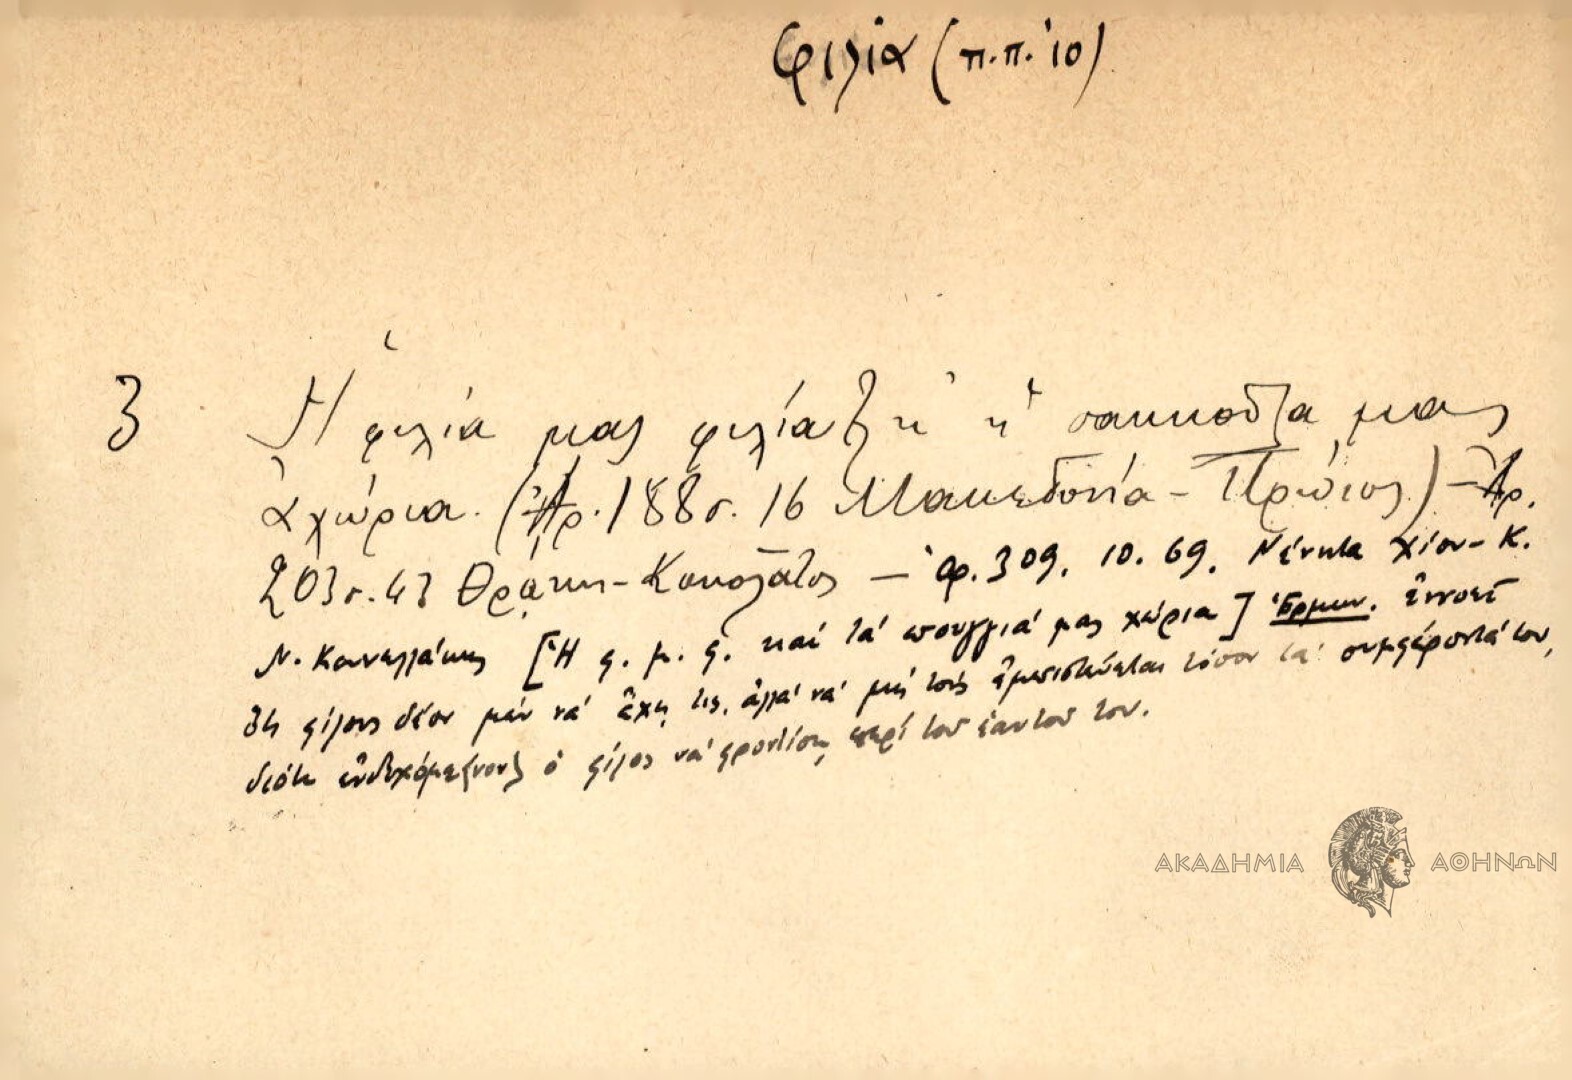 φιλία (π.π. 10)
3
Ἡ φιλία μας φιλία κι ἡ σακκοῦλα μας
ἀχώρια. (Ἀρ. 188 σ. 16 Μακεδονία - Πρώιος) - Ἀρ.
203 σ. 43 Θρᾴκη - Κουκλᾶτος - Ἀρ. 309. 10. 69. Νένητα Χίου - Κ.
Ν. Κανελλάκης [Ἡ φ. μ. φ. καί τά πουγγιά μας χώρια] Ἑρμην. ἐννοεῖ
ὅτι φίλους δέον μέν νά ἔχῃ τις, ἀλλά νά μή τούς ἐμπιστεύεται τόσον τά συμφέροντά του,
διότι ἐνδεχόμε{νον} ὁ φίλος νά φροντίσῃ περί τοῦ ἑαυτοῦ του.
ΑΚΑΔΗΜΙΑ ΑΘΗΝΩΝ